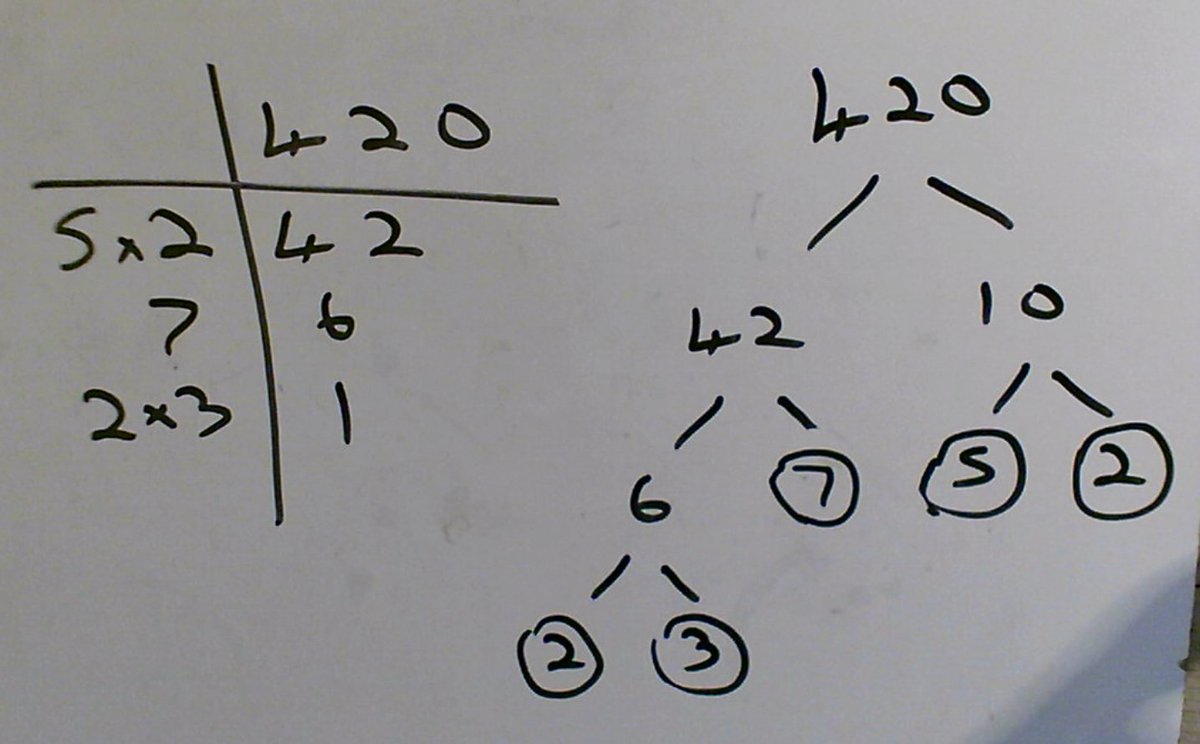 420
5×2 42
7 6
2×3 1
420
42 10
6 7 5 2
2 3